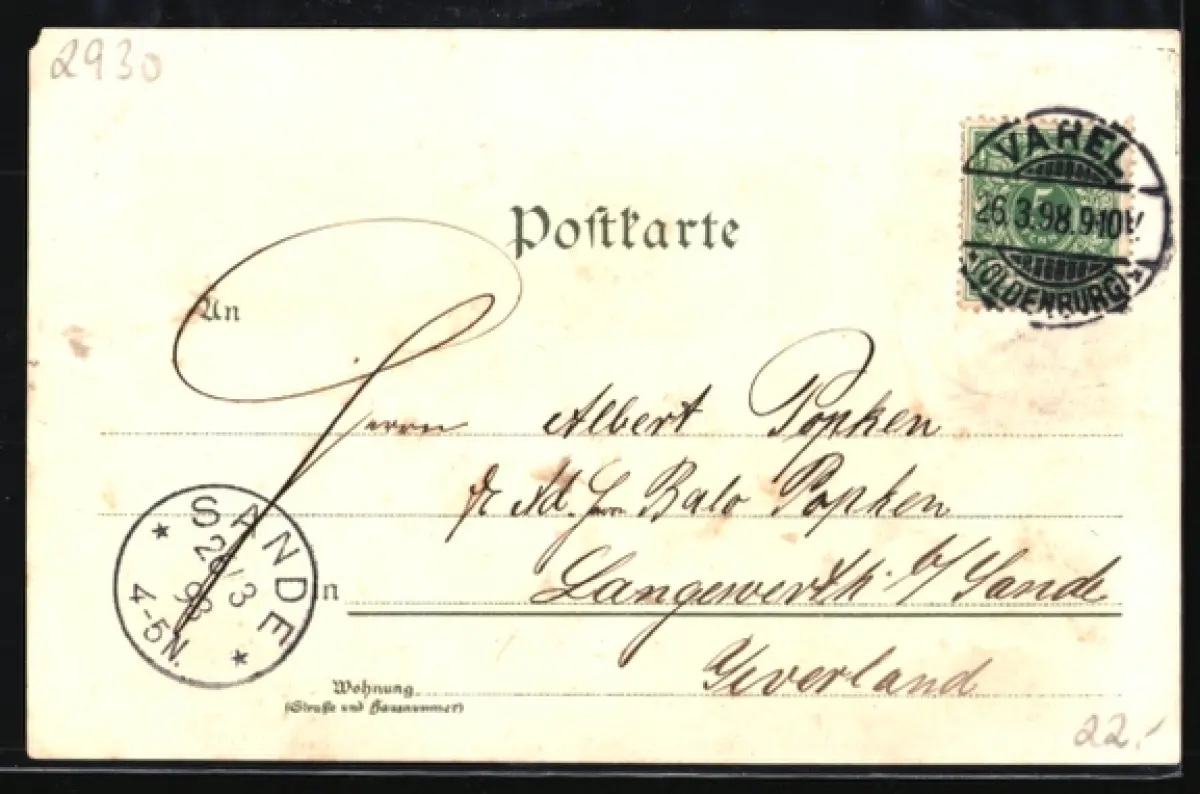 2930
VAREL
26.3.98.9-10V.
* (OLDENBURG) *
Postkarte
An
Herrn Albert Popken
Ad. Herrn Popken
Langewerth b/ Sande
Jeverland
in
SANDE
26/3
98
4-5N.
Wohnung
(Straße und Hausnummer)
22.-